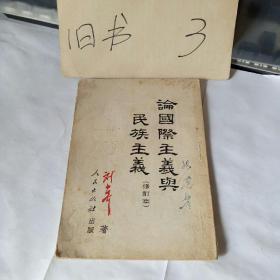 旧书 3
論國際主義與
民族主義
(修訂本)
著
人民出版社出版